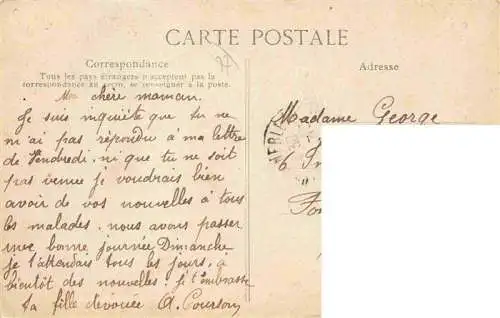 CARTE POSTALE
Correspondance
Tous les pays étrangers n'acceptent pas la
correspondance au recto, se renseigner à la poste.
Adresse
Ma chère maman.
Je suis inquiète que tu ne
m'ai pas répondu à ma lettre
de Vendredi. ni que tu ne soit
pas venue je voudrais bien
avoir de vos nouvelles à tous
les malades. nous avons passer
une bonne journée Dimanche
je t'attendais tous les jours, à
bientôt des nouvelles. je t'embrasse
Ta fille dévouée A.
Madame George
6